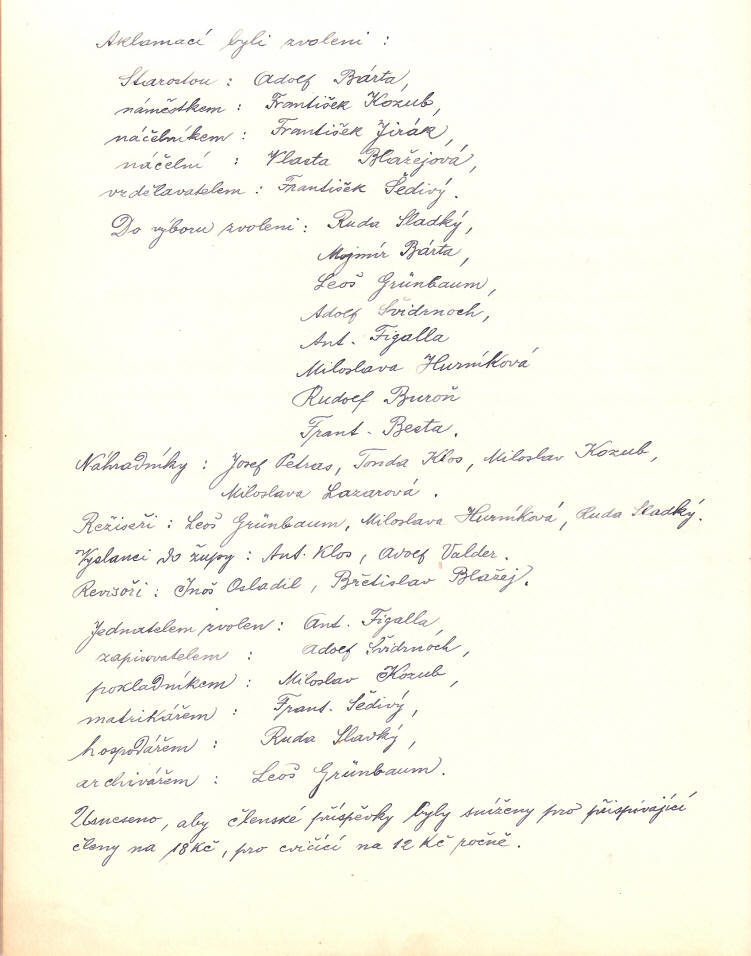 Aklamací byli zvoleni :
Starostou : Adolf Bárta,
náměstkem : František Kozub,
náčelníkem : František Jirák,
náčelní : Vlasta Blažejová,
vzdělavatelem : František Šedivý.
Do výboru zvoleni : Ruda Sladký,
Mojmír Bárta,
Leoš Grünbaum,
Adolf Švidrnoch,
Ant. Figalla
Miloslava Hurníková
Rudolf Buroň
Frant. Besta.
Náhradníky : Josef Petras, Tonda Klos, Miloslav Kozub,
Miloslava Lazarová .
Režiseři : Leoš Grünbaum, Miloslava Hurníková, Ruda Sladký.
Vyslanci do župy : Ant. Klos, Adolf Valder.
Revisoři : Inoš Osladil, Břetislav Blažej.
Jednatelem zvolen : Ant. Figalla,
zapisovatelem : Adolf Švidrnoch,
pokladníkem : Miloslav Kozub,
matrikářem : Frant. Šedivý,
hospodářem : Ruda Sladký,
archivářem : Leoš Grünbaum.
Usneseno, aby členské příspěvky byly sníženy pro přispívající
členy na 18 Kč, pro cvičící na 12 Kč ročně.